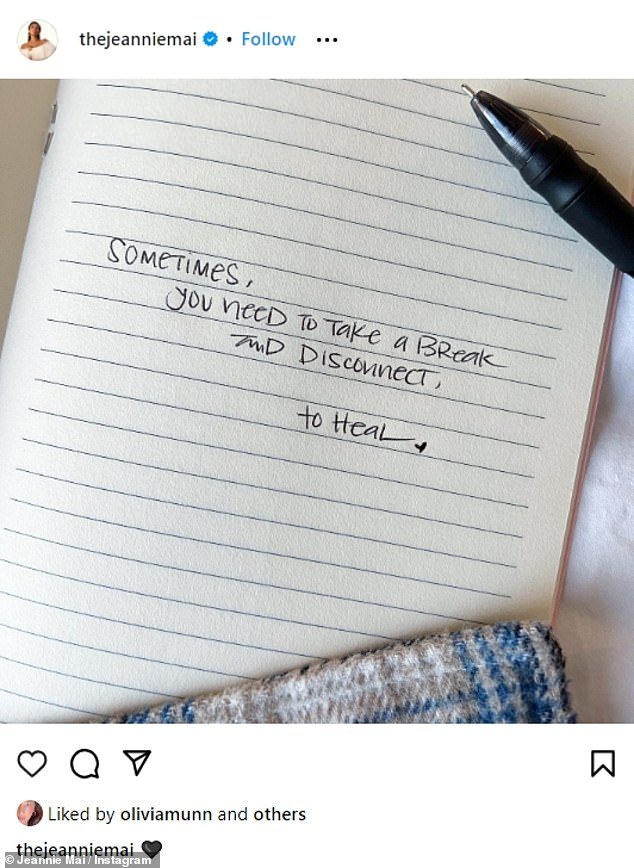 thejeanniemai • Follow •••
SOMETIMES,
you NEED TO TAKE a BREAK
AND DISCONNECT,
to HEAL
Liked by oliviamunn and others
thejeanniemai 🖤
© Jeannie Mai / Instagram